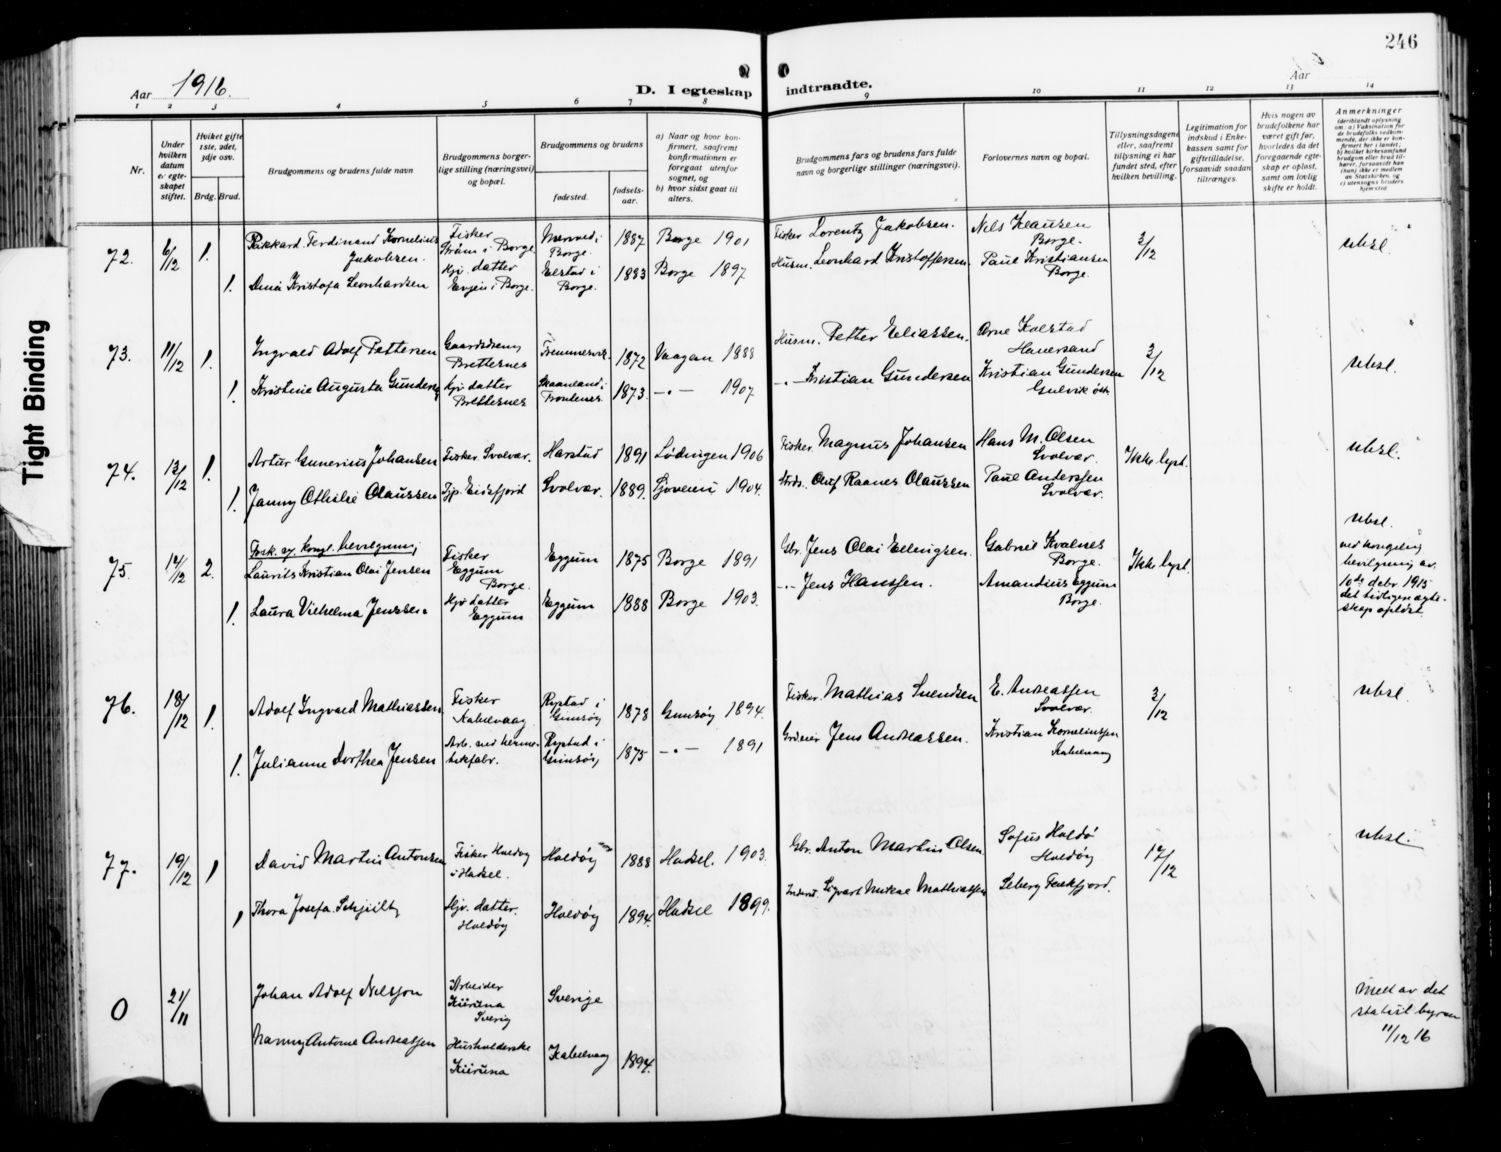 246
Tight Binding
Aar 1916.
D. I egteskap indtraadte.
Aar
1 2 3 4 5 6 7 8 9 10 11 12 13 14
Nr.
Under hvilken datum er egteskapet stiftet.
Hvilket gifte 1ste, 2det, 3dje osv.
Brdg. Brud.
Brudgommens og brudens fulde navn
Brudgommens borgerlige stilling (næringsvei) og bopæl.
Brudgommens og brudens
fødested.
fødselsaar.
a) Naar og hvor konfirmert, saafremt konfirmationen er foregaat utenfor sognet, og
b) hvor sidst gaat til alters.
Brudgommens fars og brudens fars fulde navn og borgerlige stillinger (næringsvei).
Forlovernes navn og bopæl.
Tillysningsdagene eller, saafremt tillysning ei har fundet sted, efter hvilken bevilling.
Legitimation for indskud i Enkekassen samt for giftetilladelse, forsaavidt saadan tiltrænges.
Hvis nogen av brudefolkene har været gift før, hvorledes da det foregaaende egteskap er opløst, samt om lovlig skifte er holdt.
Anmerkninger
72. 6/12 1. Rikkard Ferdinand Kornelius Jakobsen. Fisker Strøm i Borge. Borge. 1887 Borge 1901 Fisker Lorentz Jakobsen. Nils Klausen Borge. 3/12 ubsl.
1. Dina Kristofa Leonhardsen Hjv datter Evjen i Borge. Elstad i Borge. 1883 Borge 1897 Husm. Leonhard Kristoffersen Paul Kristiansen Borge.
73. 11/12 1. Ingvald Adolf Pettersen Brettesnes 1872 Vaagan 1888 Husm. Petter Eeliassen. Arne Kolstad Hanersand 3/12 ubsl.
1. Kristine Augusta Gundersen Hjv datter Brettesnes 1873. —"— 1907 —"— Kristian Gundersen Kristian Gundersen
74. 13/12 1. Artur Gunerius Johansen Fisker Svolvær. Harstad 1891 Lødingen 1906 Fisker Magnus Johansen Hans M. Olsen Svolvær. Ikke lyst. ubsl.
1. Janny Othilie Olaussen Tjp. Eidsfjord Svolvær. 1889. 1904. Oluf Raanes Olaussen Paul Anderssen Svolvær.
75. 14/12 2. Laurits Kristian Olai Jensen Fisker Eggum Borge. Eggum 1875 Borge 1891 Gbr. Jens Olai Ellingsen. Gabriel Kvalnes Borge. Ikke lyst. ubsl.
ved kongelig bevilgning av 10de debr. 1915 det tidligere egteskap opløst.
1. Laura Vilhelma Jenssen Hjv datter Eggum Eggum 1888 Borge 1903. —"— Jens Hanssen. Amandius Eggum Borge.
76. 18/12 1. Adolf Ingvald Mathiassen Fisker Kabelvaag Rystad i Gimsøy 1878 Gimsøy 1894. Fisker Mathias Svendsen E. Andreassen Svolvær. 3/12 ubsl.
1. Julianne Dorthea Jensen Arb. ved hermetikfabr. Rystad i Gimsøy 1875 —"— 1891 Jens Andreassen. Kristian Korneliussen Kabelvaag
77. 19/12 1 David Martin Antonsen Fisker Holdøy i Hadsel. Holdøy 1888 Hadsel. 1903. Gbr. Anton Martin Olsen Sofus Holdø Holdøy 17/12 ubsl.
1 Thora Josefa Schjelby Hjv. datter. Holdøy Holdøy 1894. Hadsel 1899. Sigvart Mikal Mathiassen Seberg
0 21/11 Johan Adolf Nilsson Arbeider Kiiruna Sverig Sverige Meld av det statist. byraa 11/12 16
Nanny Antonie Andreassen Husholderske Kiiruna Kabelvaag 1894.